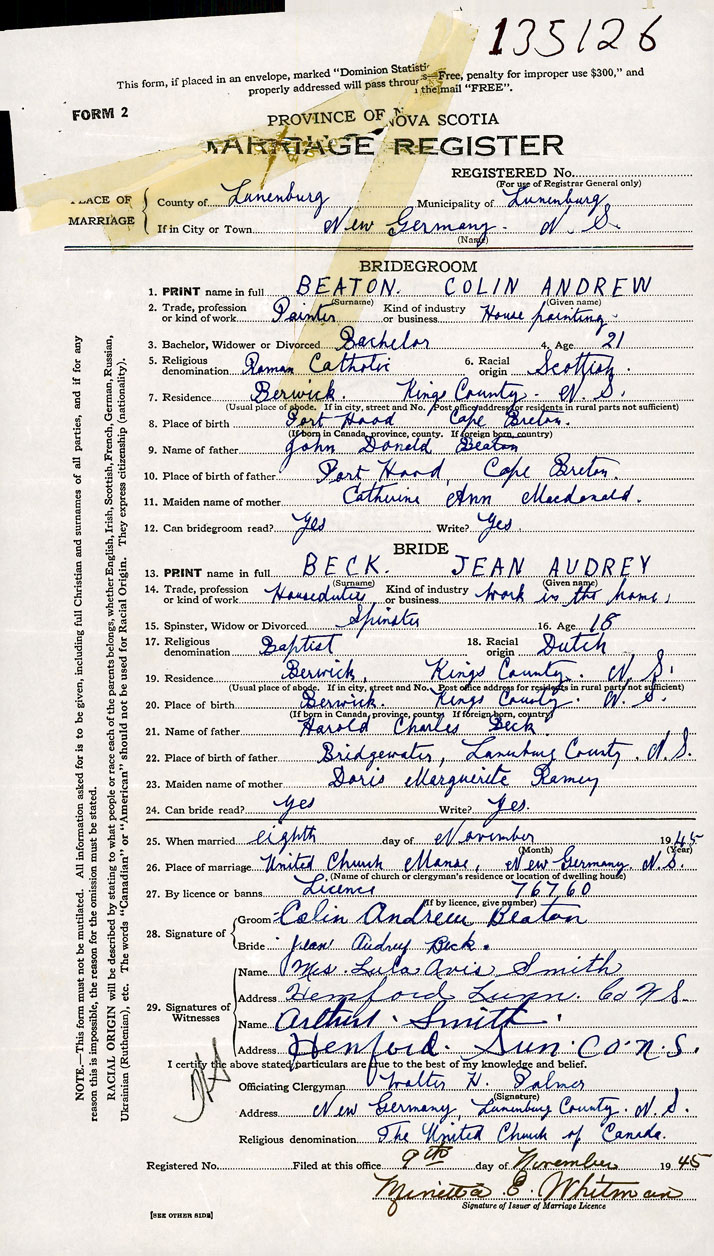 135126
This form, if placed in an envelope, marked "Dominion Statisti
properly addressed will pass throu s—Free, penalty for improper use $300," and
the mail "FREE".
FORM 2
PROVINCE OF NOVA SCOTIA
MARRIAGE REGISTER
REGISTERED No.
(For use of Registrar General only)
PLACE OF MARRIAGE
County of Lunenburg Municipality of Lunenburg
If in City or Town New Germany. N. S.
(Name)
BRIDEGROOM
1. PRINT name in full BEATON. COLIN ANDREW
(Surname) (Given name)
2. Trade, profession or kind of work Painter Kind of industry or business House painting
3. Bachelor, Widower or Divorced Bachelor 4. Age 21
5. Religious denomination Roman Catholic 6. Racial origin Scottish.
7. Residence Berwick. Kings County. N. S.
(Usual place of abode. If in city, street and No. Post office address for residents in rural parts not sufficient)
8. Place of birth Port Hood Cape Breton.
(If born in Canada, province, county. If foreign born, country)
9. Name of father John Donald Beaton
10. Place of birth of father Port Hood, Cape Breton.
11. Maiden name of mother Catherine Ann Macdonald.
12. Can bridegroom read? Yes Write? Yes.
BRIDE
13. PRINT name in full BECK. JEAN AUDREY
(Surname) (Given name)
14. Trade, profession or kind of work Houseduties Kind of industry or business Work in the home.
15. Spinster, Widow or Divorced Spinster 16. Age 18
17. Religious denomination Baptist 18. Racial origin Dutch
19. Residence Berwick, Kings County. N. S.
(Usual place of abode. If in city, street and No. Post office address for residents in rural parts not sufficient)
20. Place of birth Berwick. Kings County. N. S.
(If born in Canada, province, county. If foreign born, country)
21. Name of father Harold Charles Beck.
22. Place of birth of father Bridgewater, Lunenburg County. N. S.
23. Maiden name of mother Doris Marguerite Ramey
24. Can bride read? Yes Write? Yes.
25. When married eighth day of November 1945
(Month) (Year)
26. Place of marriage United Church Manse, New Germany N. S.
(Name of church or clergyman's residence or location of dwelling house)
27. By licence or banns Licence 76760
(If by licence, give number)
28. Signature of
Groom Colin Andrew Beaton
Bride Jean Audrey Beck.
29. Signatures of Witnesses
Name Mrs. Lula Avis Smith
Address Hemford Lun. Co N S.
Name Arthur Smith
Address Henford. Lun. CO. N. S.
I certify the above stated particulars are true to the best of my knowledge and belief.
Officiating Clergyman Walter H. Palmer
(Signature)
Address New Germany, Lunenburg County. N. S.
Religious denomination The United Church of Canada.
Registered No. Filed at this office 9th day of November 1945
Minetta E. Whitman
Signature of Issuer of Marriage Licence
[SEE OTHER SIDE]
NOTE.—This form must not be mutilated. All information asked for is to be given, including full Christian and surnames of all parties, and if for any
reason this is impossible, the reason for the omission must be stated.
RACIAL ORIGIN will be described by stating to what people or race each of the parents belongs, whether English, Irish, Scottish, French, German, Russian,
Ukrainian (Ruthenian), etc. The words "Canadian" or "American" should not be used for Racial Origin. They express citizenship (nationality).